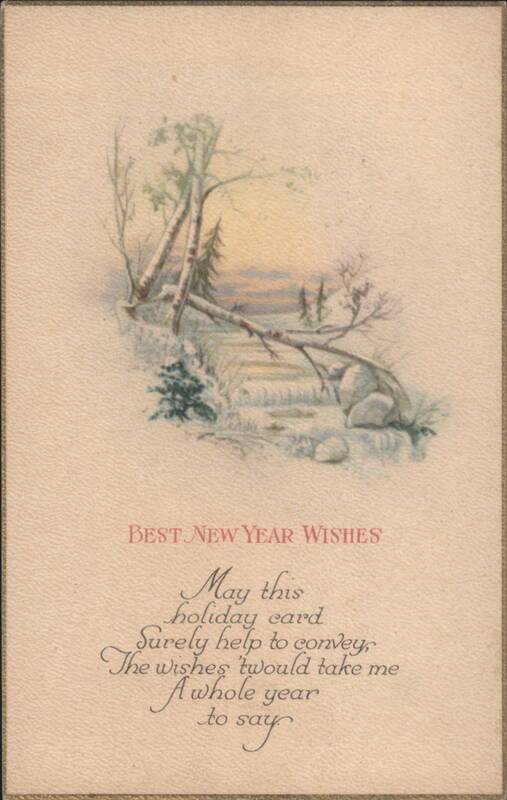 BEST NEW YEAR WISHES
May this
holiday card
Surely help to convey,
The wishes 'twould take me
A whole year
to say.